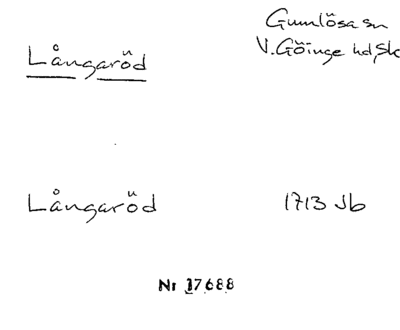 Gumlösa sn
Långaröd
V. Göinge hd, Sk
Långaröd 1713 Jb
Nr 17688